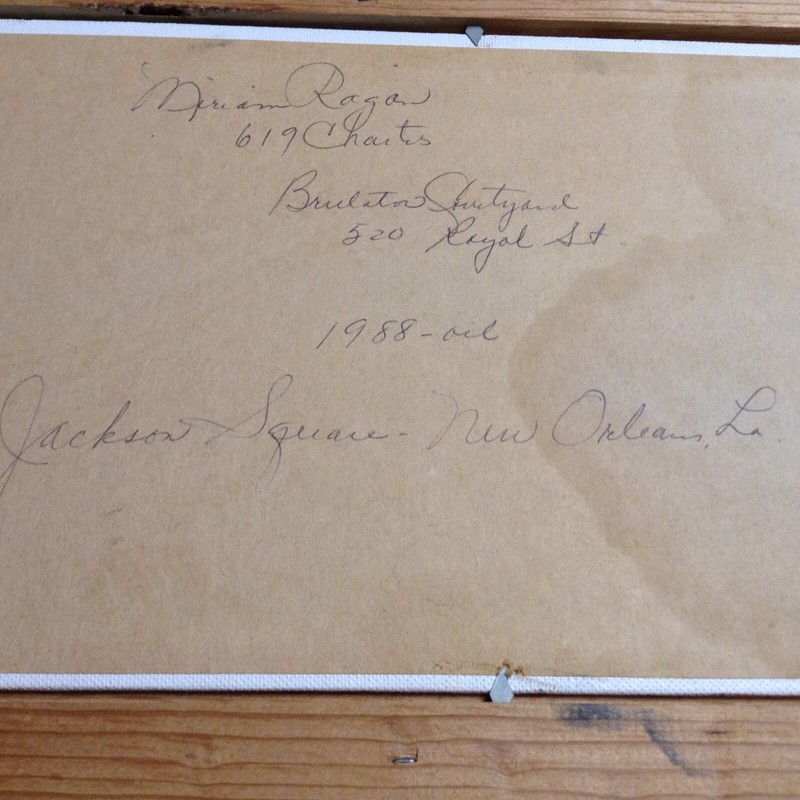 Miriam Ragan
619 Chartes
Brulator Courtyard
520 Royal St
1988-oil
Jackson Square - New Orleans, La.